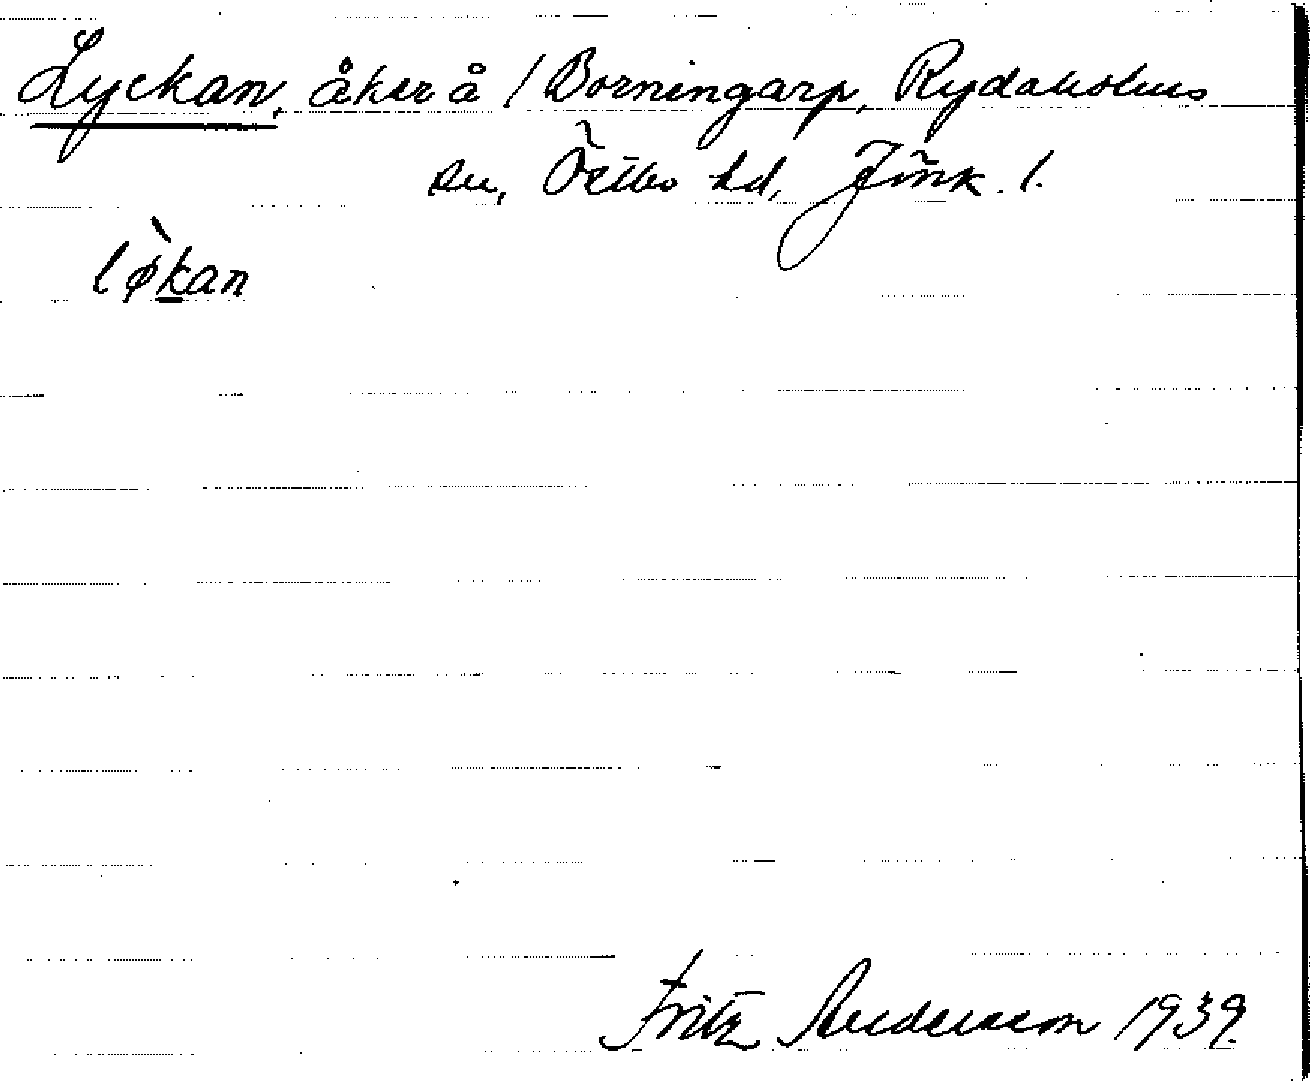 Lyckan, åker å /Borningarp, Rydaholms
sn, Östbo hd, Jönk. l.
lø̀kan
Fritz Andersson 1939.